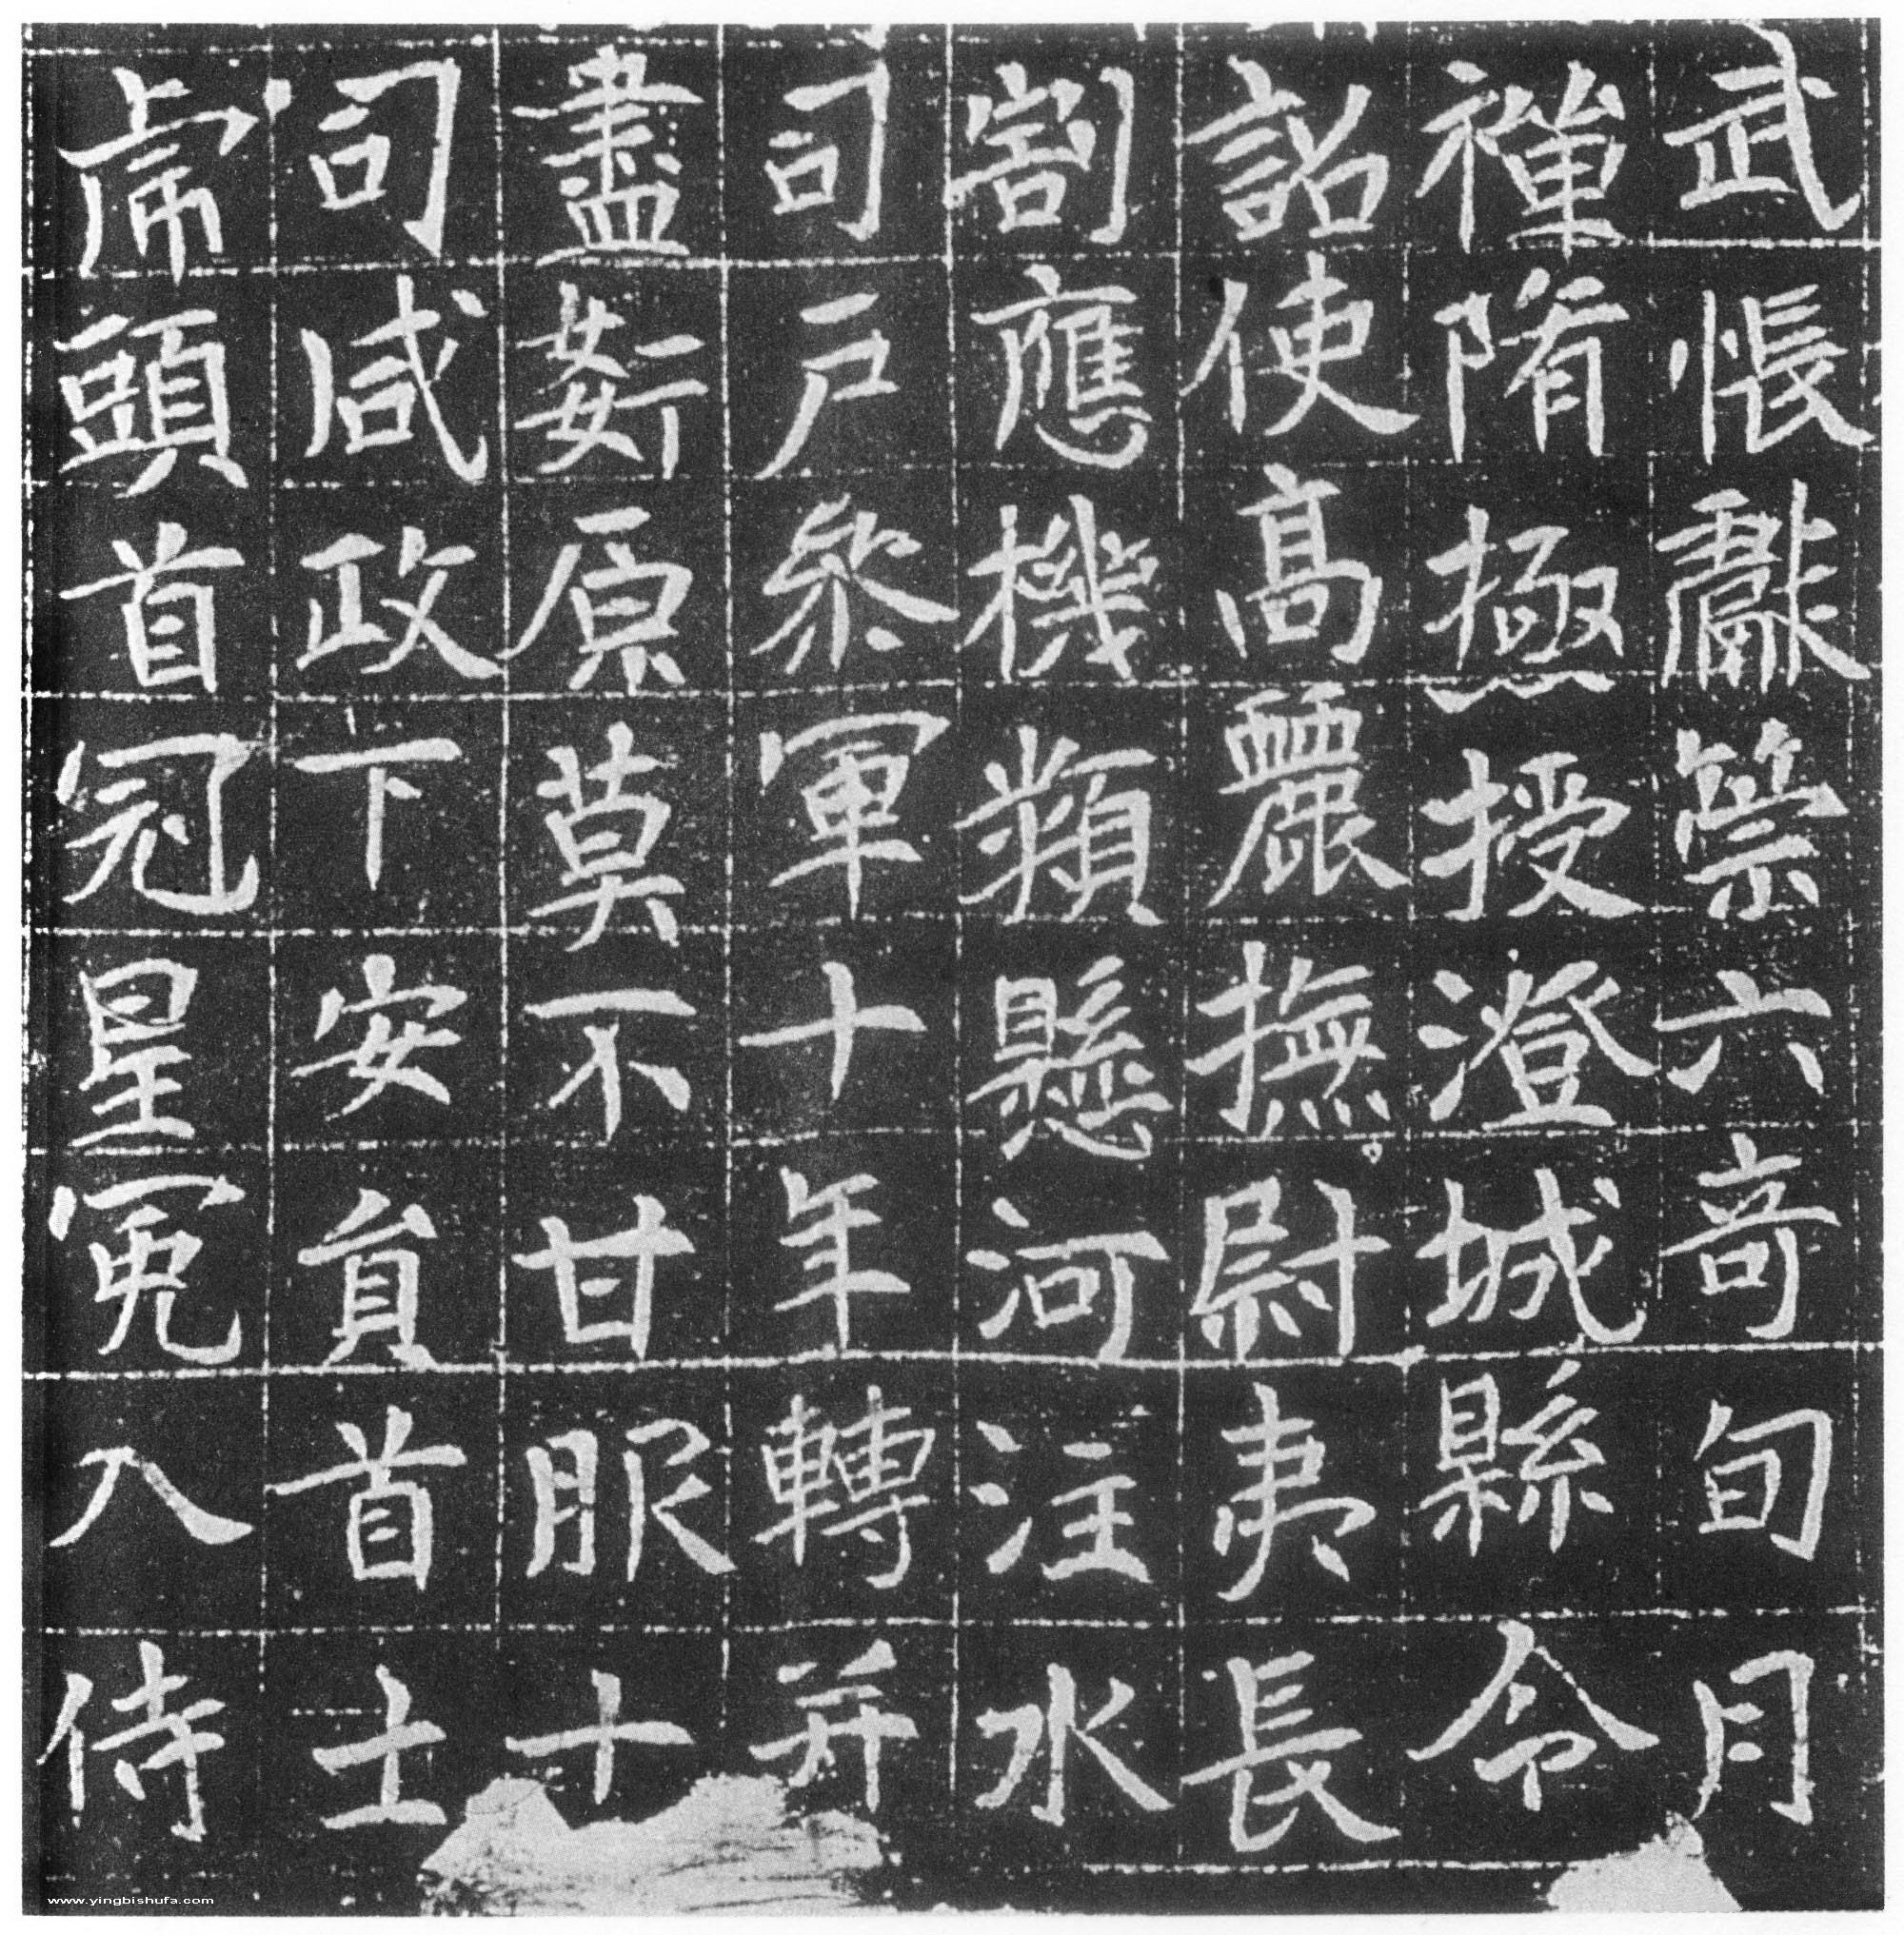 武帳獻筞六奇旬月
禪隋極授澄城縣令
詔使高麗撫尉夷長
割應機類懸河注水
司戶叅軍十年轉并
盡姧原莫不甘服十
司咸政下安貟首士
虎頭首冠星冕入侍
www.yingbishufa.com